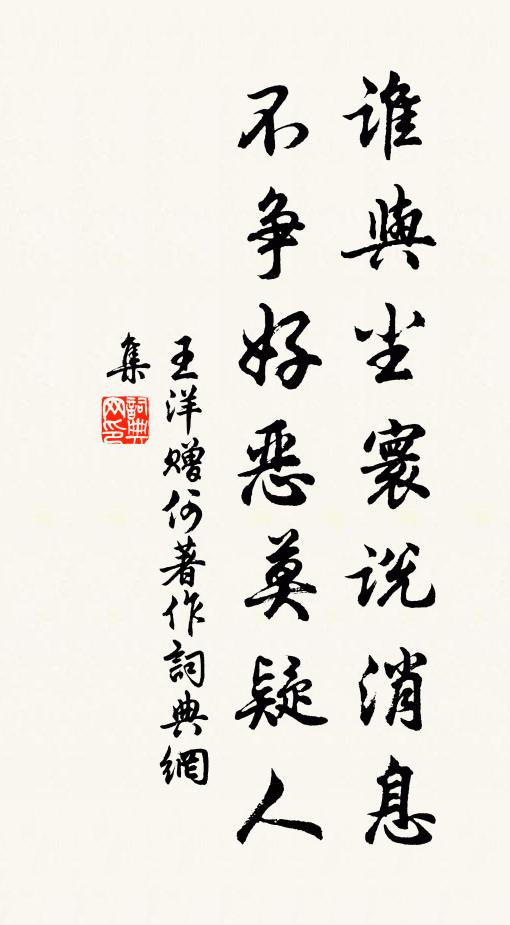 谁與尘寰说消息
不争好恶莫疑人
王洋赠何著作詞典網
集
詞典网印